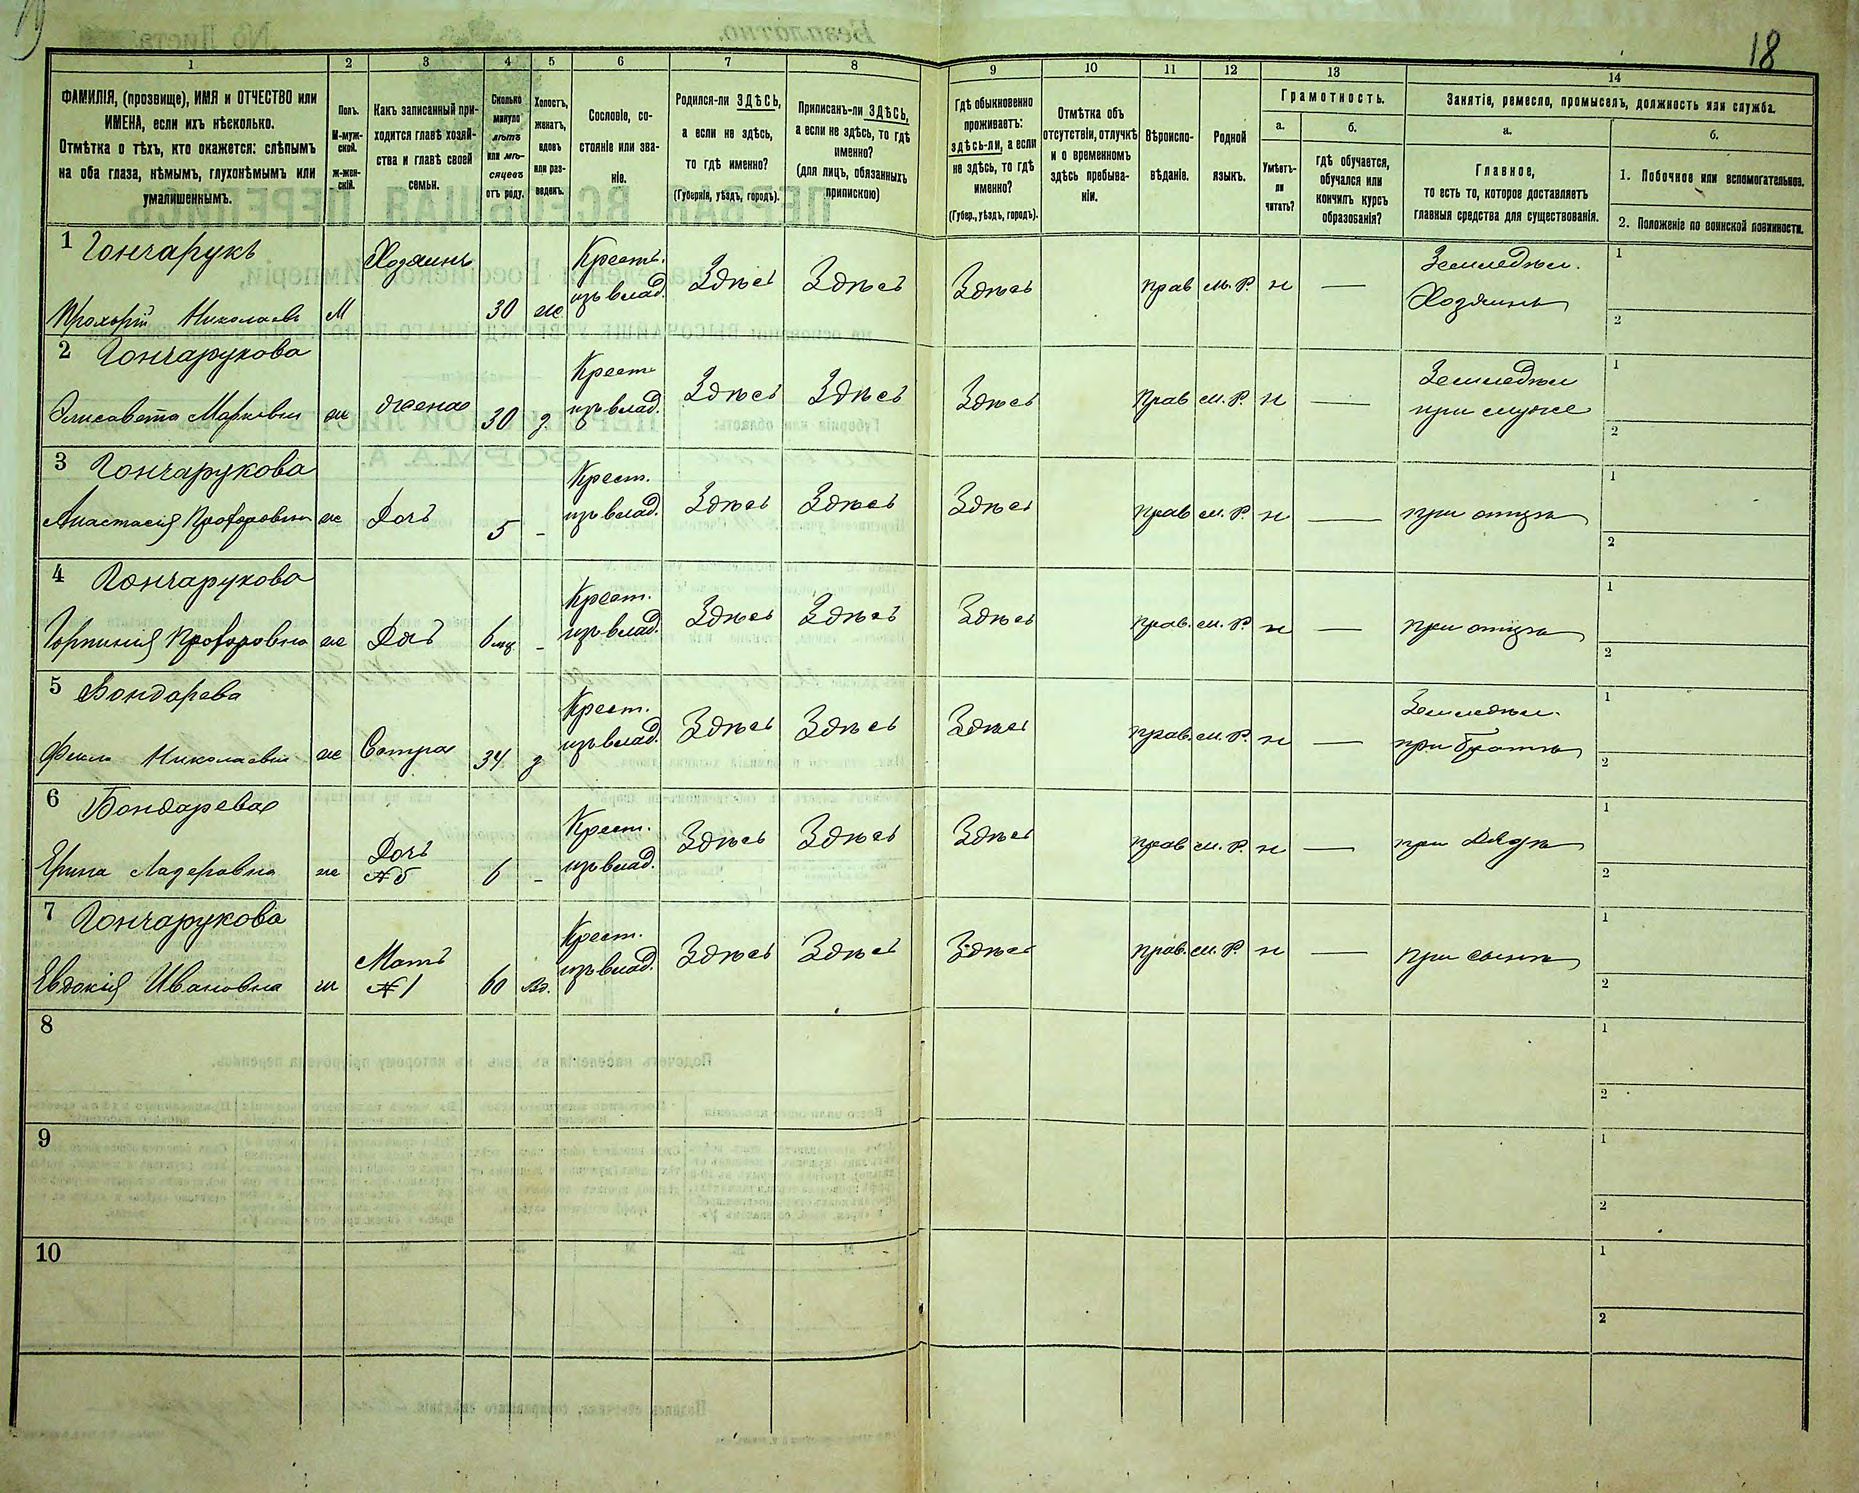 18
1
2
3
4
5
6
7
8
9
10
11
12
13
14
ФАМИЛІЯ, (прозвище), ИМЯ и ОТЧЕСТВО или
ИМЕНА, если ихъ нѣсколько.
Отмѣтка о тѣхъ, кто окажется: слѣпымъ
на оба глаза, нѣмымъ, глухонѣмымъ или
умалишеннымъ.
Полъ.
М-муж-
ской.
ж-жен-
скій.
Какъ записанный при-
ходится главѣ хозяй-
ства и главѣ своей
семьи.
Сколько
минуло
лѣтъ
или мѣ-
сяцевъ
отъ роду.
Холостъ,
женатъ,
вдовъ
или раз-
веденъ.
Сословіе, со-
стояніе или зва-
ніе.
Родился-ли ЗДѢСЬ,
а если не здѣсь,
то гдѣ именно?
(Губернія, уѣздъ, городъ).
Приписанъ-ли ЗДѢСЬ,
а если не здѣсь, то гдѣ
именно?
(для лицъ, обязанныхъ
припискою)
Гдѣ обыкновенно
проживаетъ:
здѣсь-ли, а если
не здѣсь, то гдѣ
именно?
(Губер., уѣздъ, городъ).
Отмѣтка объ
отсутствіи, отлучкѣ
и о временномъ
здѣсь пребыва-
ніи.
Вѣроиспо-
вѣданіе.
Родной
языкъ.
Грамотность.
а.
Умѣетъ-
ли
читать?
б.
гдѣ обучается,
обучался или
кончилъ курсъ
образованія?
Занятіе, ремесло, промыселъ, должность или служба.
а.
Главное,
то есть то, которое доставляетъ
главныя средства для существованія.
б.
1. Побочное или вспомогательное.
2. Положеніе по воинской повинности.
1 Гончарукъ
Прохорій Николаевъ
М
Хозяинъ
30
ж
Крест.
изъ влад.
Здѣсь
Здѣсь
Здѣсь
прав
м. Р.
н
—
Земледѣл.
Хозяинъ
1
2
2 Гончарукова
Елисавета Марковна
ж
жена
30
з
Крест.
изъ влад.
Здѣсь
Здѣсь
Здѣсь
прав
м. Р.
н
—
Земледѣл
при мужѣ
1
2
3 Гончарукова
Анастасія Прохоровна
ж
Дочь
5
-
Крест.
изъ влад.
Здѣсь
Здѣсь
Здѣсь
прав
м. Р.
н
—
при отцѣ
1
2
4 Гончарукова
Горпинія Прохоровна
ж
Дочь
6 мц.
-
Крест.
изъ влад.
Здѣсь
Здѣсь
Здѣсь
прав.
м. Р.
н
—
при отцѣ
1
2
5 Бондарева
Николаевна
ж
Сестра
34
з
Крест.
изъ влад.
Здѣсь
Здѣсь
Здѣсь
прав.
м. Р.
н
—
Земледѣл.
при братѣ
1
2
6 Бондарева
Ярина
ж
Дочь
№ 5
6
-
Крест.
изъ влад.
Здѣсь
Здѣсь
Здѣсь
прав
м. Р.
н
—
при дядѣ
1
2
7 Гончарукова
Евдокія Ивановна
ж
Мать
№ 1
60
вд.
Крест.
изъ влад.
Здѣсь
Здѣсь
Здѣсь
прав.
м. Р.
н
—
при сынѣ
1
2
8
1
2
9
1
2
10
1
2